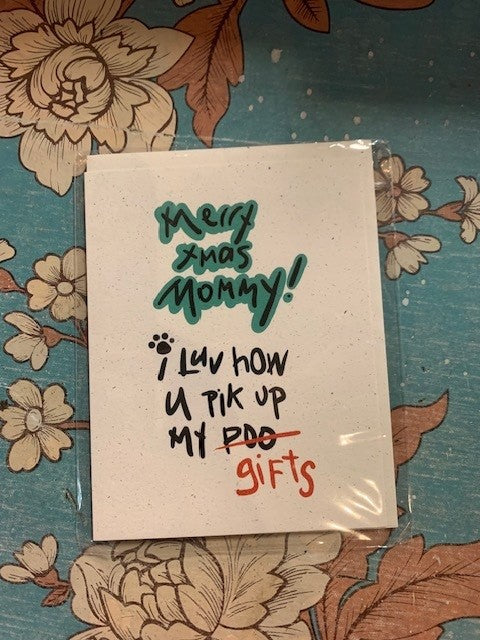 Merry
xmas
Mommy!
i Luv how
u pik up
my poo
gifts